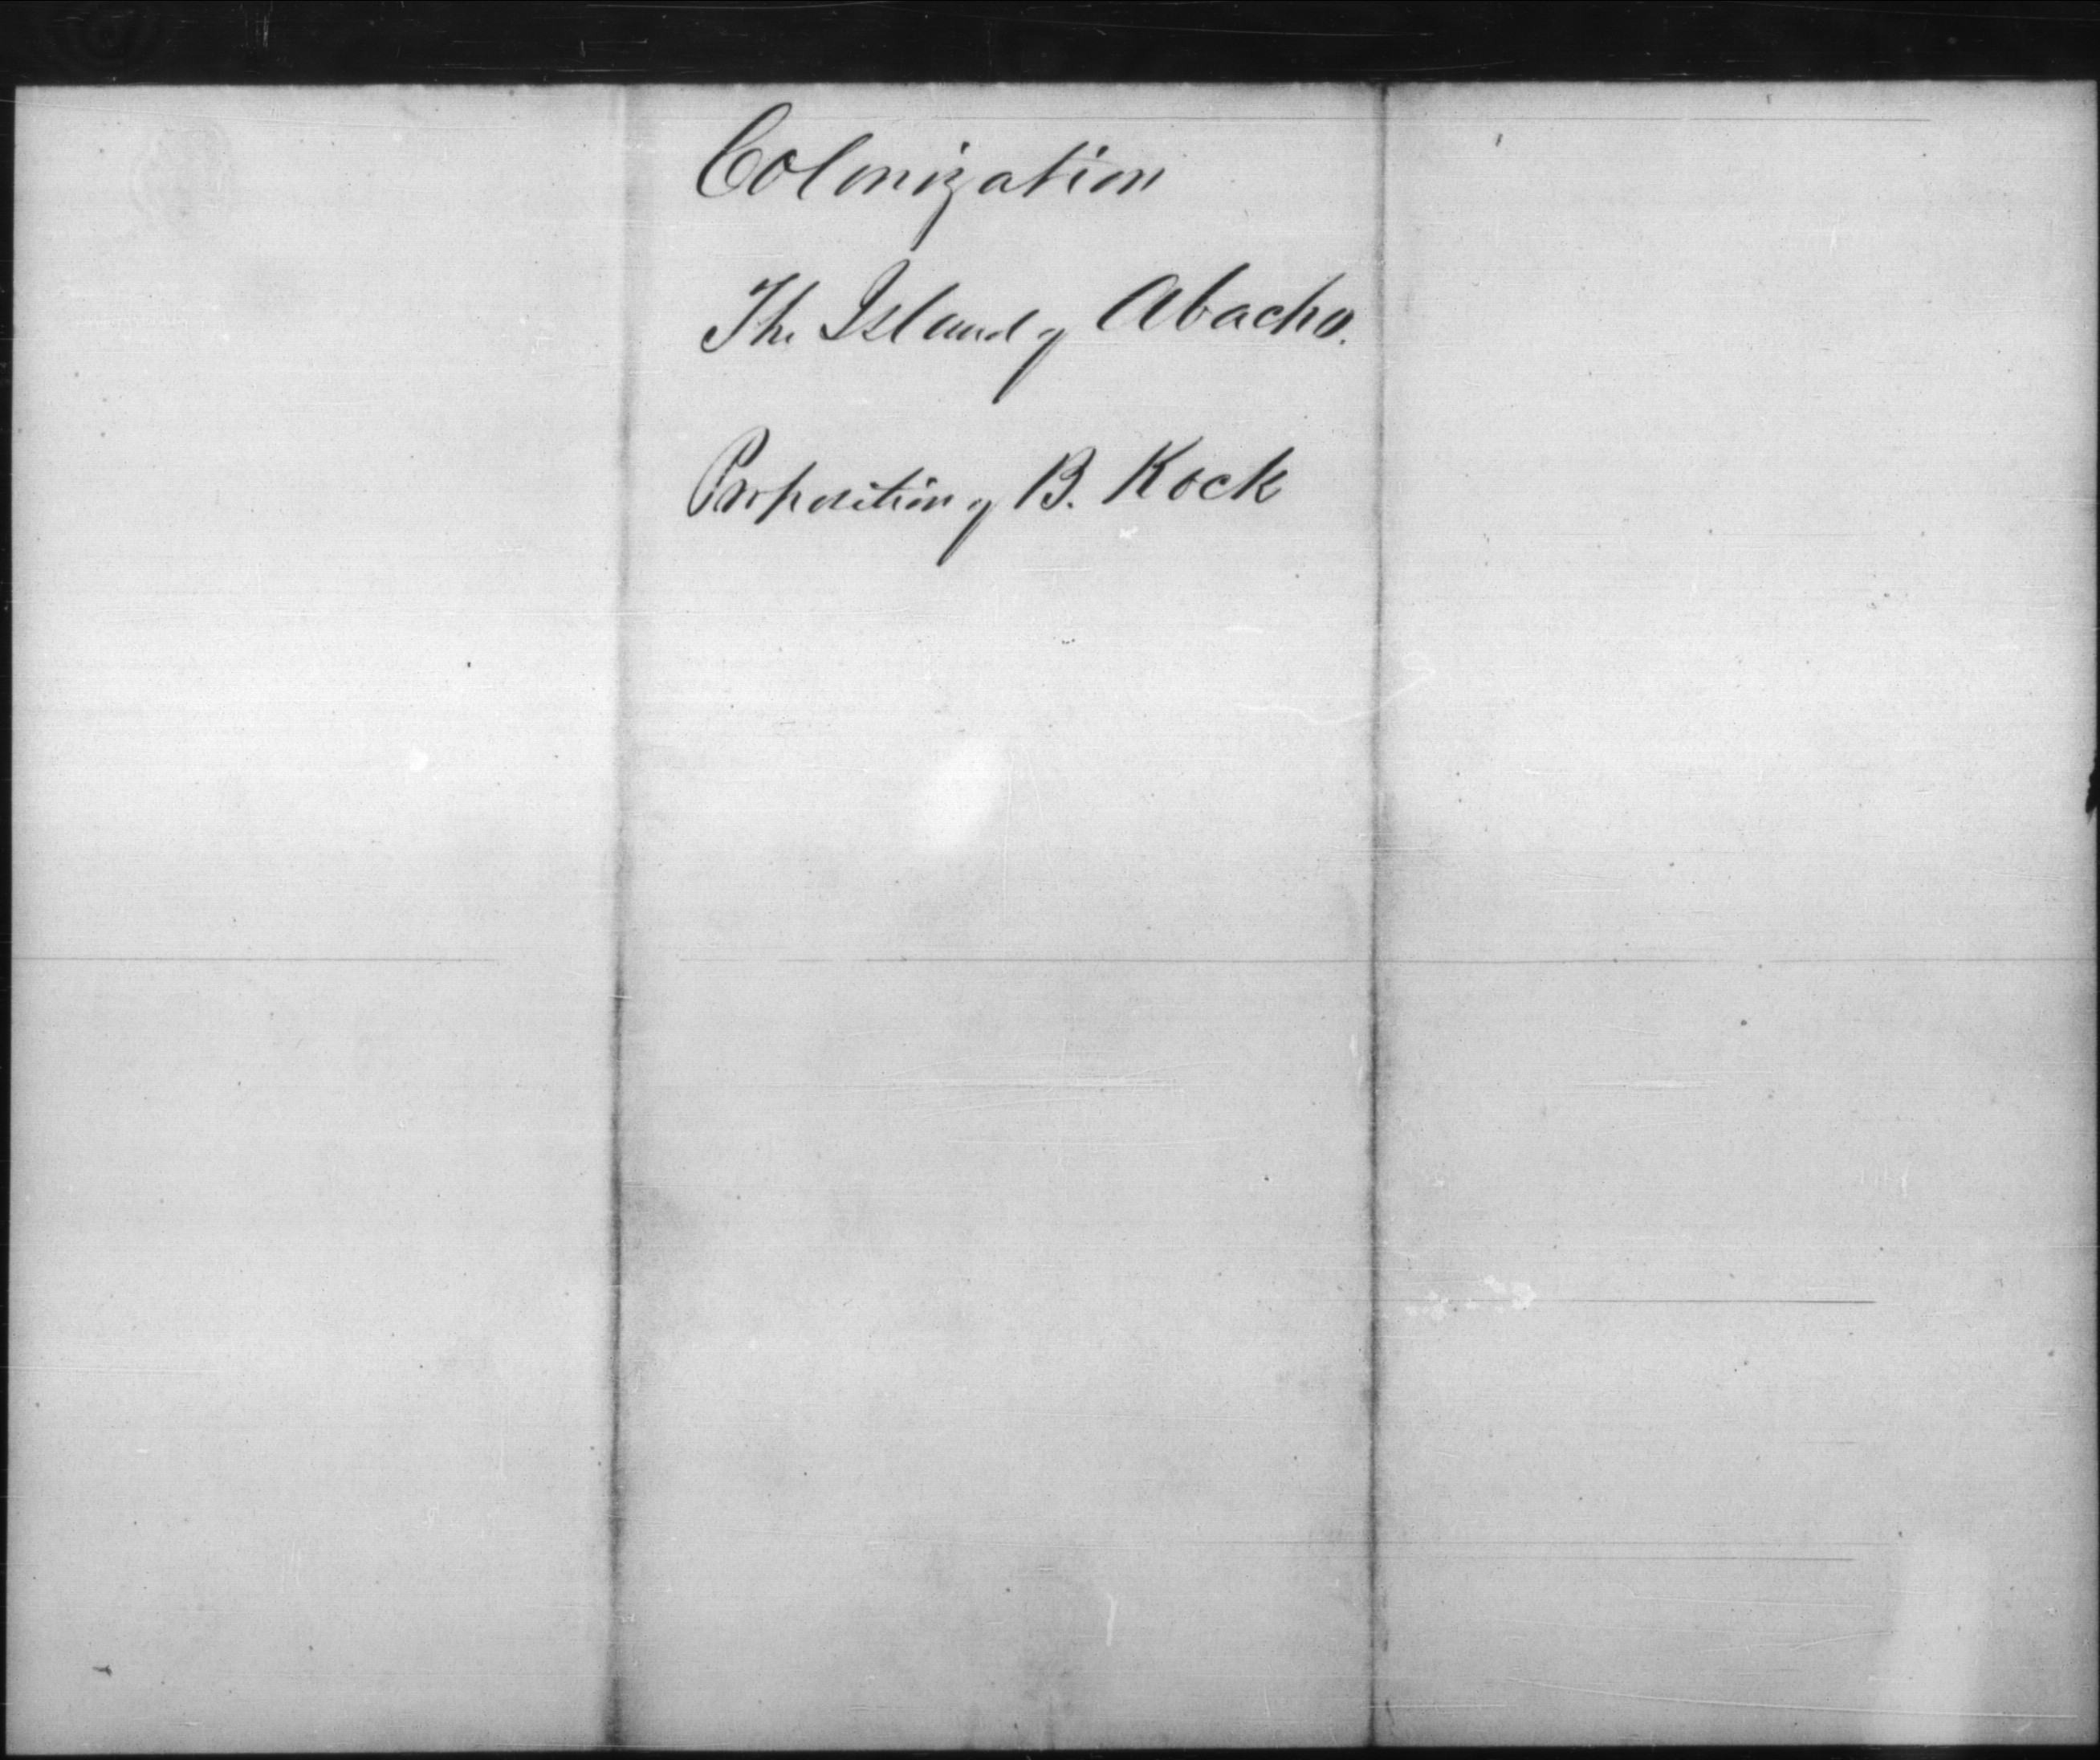 Colonization
The Island of Abacho.
Proposition of B. Kock